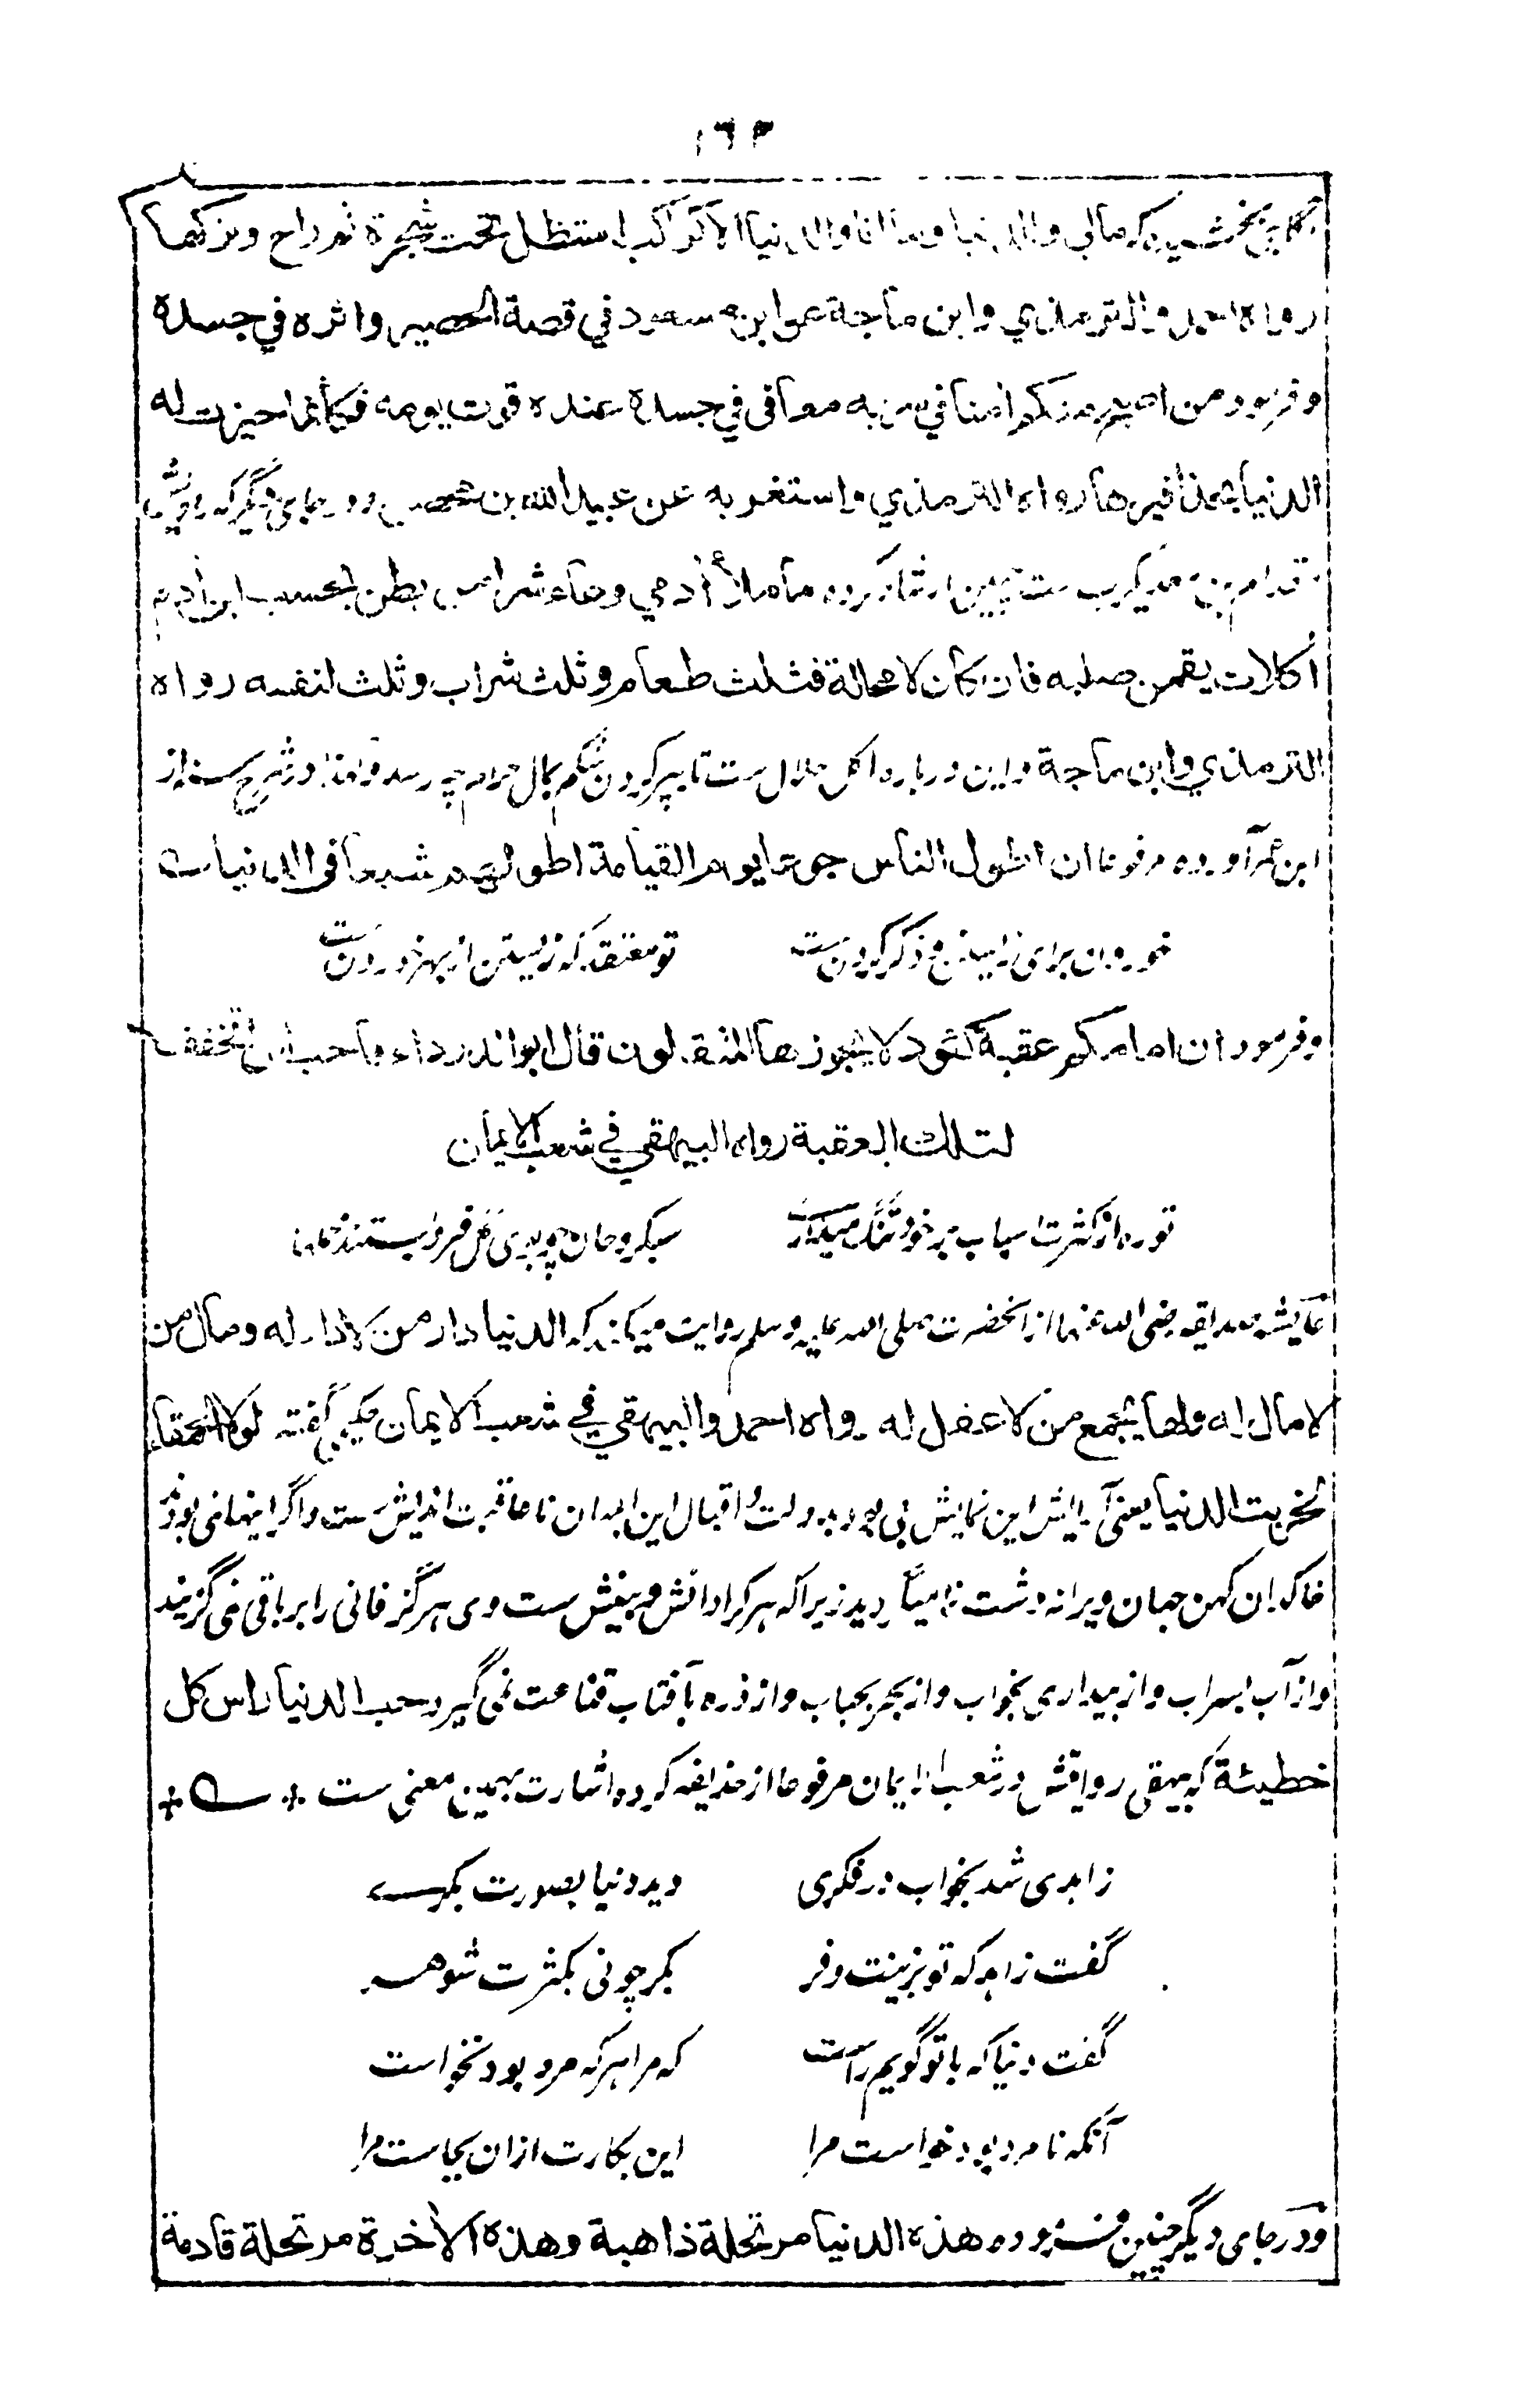 ١٦٣
که مالي وللدنيا وما انا والدنيا الا كراكب استظل تحت شجرة ثم راح وتركها
رواه احمد والترمذي وابن ماجة عن ابن مسعود في قصة الحصير واثره في جسده
وفرمود من اصبح منكم امنا في سربه معافى في جسده عنده قوت يومه فكأنما حيزت له
الدنيا بحذافيرها رواه الترمذي واستغربه عن عبيد الله بن محصن ودر جاى ديگر که
مقدام بن معديكرب ست چنين ارشاد کرده ما ملأ أدمي وعاء شرا من بطن بحسب ابن أدم
أكلات يقمن صلبه فان كان لا محالة فثلث طعام وثلث شراب وثلث لنفسه رواه
الترمذي وابن ماجة واين درباره اکل حلال ست تا بپر کردن شکم بمال حرام چه رسد ولهذا در شرح سنه از
ابن عمر آورده مرفوعا ان اطول الناس جوعا يوم القيامة اطولهم شبعا في الدنيا ے
خوردن براى زيستن و ذکر کردن ست تو معتقد که زيستن از بهر خوردن ست
وفرمود ان امامكم عقبة كئود لا يجوزها المثقلون قال ابو الدرداء فاحب ان اتخفف
لتلك العقبة رواه البيهقي في شعب الايمان
تو ره از کثرت اسباب بر خود تنگ ميدارى سبکروحان چو بوى گل
عايشه صديقه رضى الله عنها از آنحضرت صلى الله عليه وسلم روايت ميکند که الدنيا دار من لا دار له ومال من
لا مال له ولها يجمع من لا عقل له رواه احمد والبيهقي في شعب الايمان حکيمى گفته لولا الحمقاء
لخربت الدنيا يعنى آرايش اين نمايش بى بود بدولت و اقبال اين ابلهان ناعاقبت انديش ست واگر اينها نمى بودند
خاکدان کهن جهان ويرانه وشت زيرا که هر کرا دانش و بينش ست وى هرگز فانى را بر باقى نمى گزيند
واز آب بسراب واز بيدارى بخواب واز بحر بحباب واز ذره بآفتاب قناعت نمى گيرد حب الدنيا راس كل
خطيئة که بيهقى روايتش در شعب الايمان مرفوعا از حذيفه کرده اشارت بهمين معنى ست + ے +
زاهدى شد بخواب در فکرى ديد دنيا بصورت بکرے
گفت زاهد که تو بزينت وفر بکر چونى بکثرت شوهر
گفت دنيا که با تو گويم راست که مرا هر که مرد بود نخواست
آنکه نامرد بود خواست مرا اين بکارت ازان بجاست مرا
ودر جاى ديگر چنين فرموده هذه الدنيا مرتحلة ذاهبة وهذه الأخرة مرتحلة قادمة